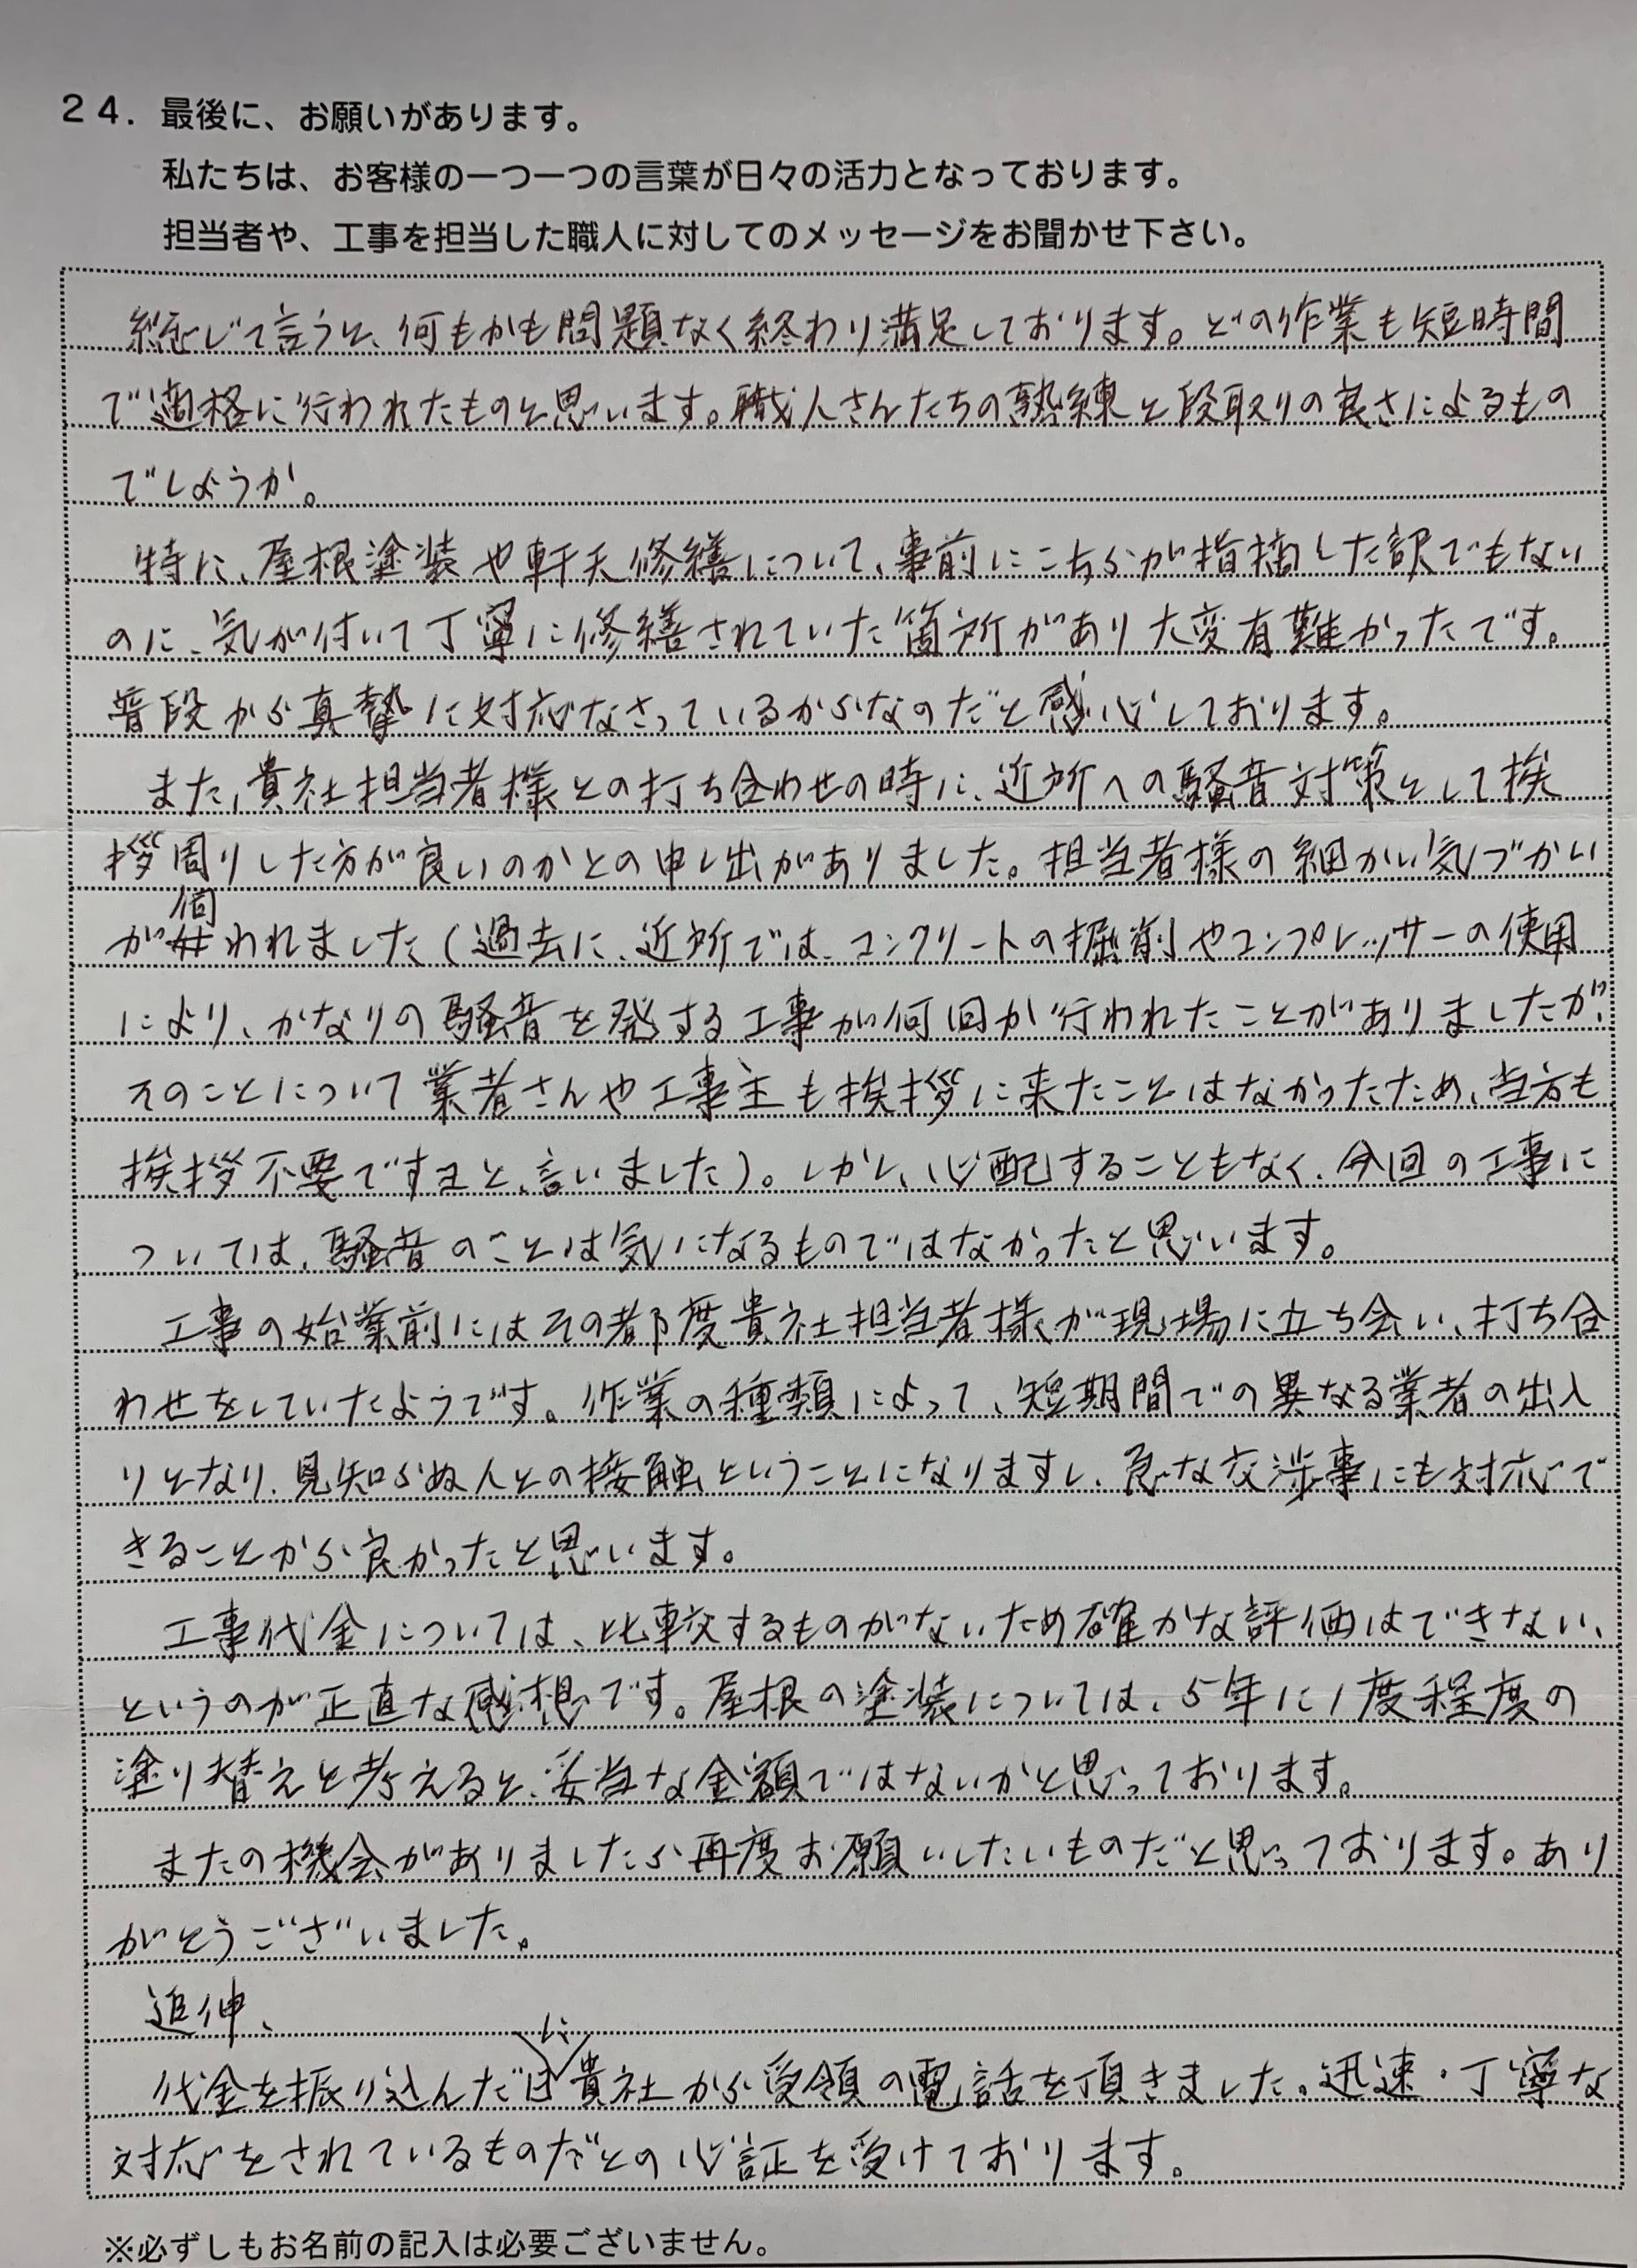 24. 最後に、お願いがあります。
私たちは、お客様の一つ一つの言葉が日々の活力となっております。
担当者や、工事を担当した職人に対してのメッセージをお聞かせ下さい。
総じて言うと、何もかも問題なく終わり満足しております。どの作業も短時間
で適格に行われたものと思います。職人さんたちの熟練と段取りの良さによるもの
でしょうか。
特に、屋根塗装や軒天修繕について、事前にこちらが指摘した訳でもない
のに、気が付いて丁寧に修繕されていた箇所があり大変有難かったです。
普段から真摯に対応なさっているからなのだと感心しております。
また、貴社担当者様との打ち合わせの時に、近所への騒音対策として挨
拶周りした方が良いのかとの申し出がありました。担当者様の細かい気づかい
が伺われました(過去に、近所では、コンクリートの掘削やコンプレッサーの使用
により、かなりの騒音を発する工事が何回か行われたことがありましたが、
そのことについて業者さんや工事主も挨拶に来たことはなかったため、当方も
挨拶不要ですヨと、言いました)。しかし、心配することもなく、今回の工事に
ついては、騒音のことは気になるものではなかったと思います。
工事の始業前にはその都度貴社担当者様が現場に立ち会い、打ち合
わせをしていたようです。作業の種類によって、短期間での異なる業者の出入
りとなり、見知らぬ人との接触ということになりますし、急な交渉事にも対応で
きることから良かったと思います。
工事代金については、比較するものがないため確かな評価はできない、
というのが正直な感想です。屋根の塗装については、5年に1度程度の
塗り替えと考えると、妥当な金額ではないかと思っております。
またの機会がありましたら再度お願いしたいものだと思っております。あり
がとうございました。
追伸、
代金を振り込んだ日に貴社から受領の電話を頂きました。迅速・丁寧な
対応をされているものだとの心証を受けております。
※必ずしもお名前の記入は必要ございません。